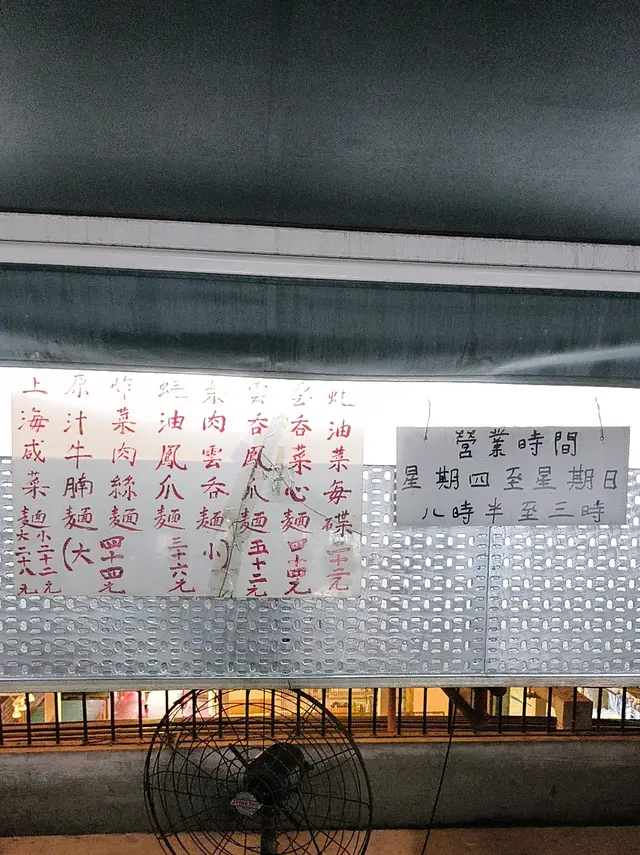 蚝油菜每碟二十二元
雲吞菜心麵四十四元
雲吞鳳爪麵五十二元
菜肉雲吞麵(小)
蚝油鳳爪麵三十六元
炸菜肉絲麵四十四元
原汁牛腩麵(大
上海咸菜麵小二十二元
大二十八元
營業時間
星期四至星期日
八時半至三時